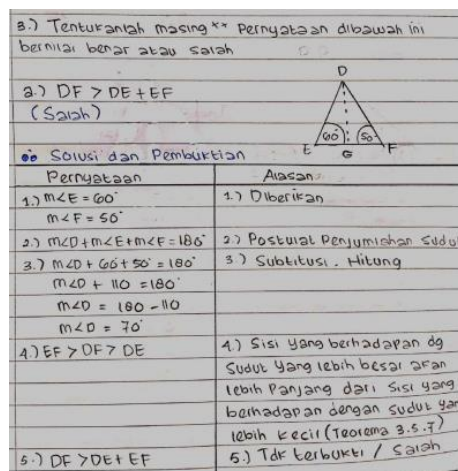 3.) Tentukanlah masing ** Pernyataan dibawah ini
bernilai benar atau salah
a.) DF > DE + EF
(Salah)
D
60°
50
E
G
F
Solusi dan Pembuktian
Pernyataan
Alasan
1.) m∠E = 60°
m∠F = 50°
1.) Diberikan
2.) m∠D + m∠E + m∠F = 180°
2.) Postulat Penjumlahan Sudu
3.) m∠D + 60 + 50° = 180°
m∠D + 110 = 180°
m∠D = 180 - 110
m∠D = 70°
3.) Subtitusi. Hitung
4.) EF > DF > DE
4.) Sisi yang berhadapan dg
sudut yang lebih besar akan
lebih Panjang dari sisi yang
berhadapan dengan sudut yan
lebih kecil (Teorema 3.5.7)
5.) DF > DE + EF
5.) Tdk terbukti / Salah